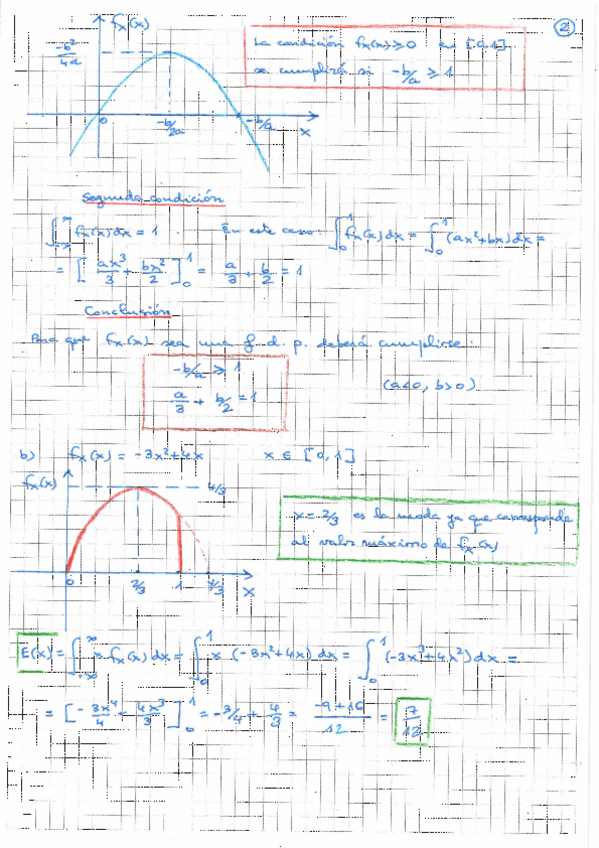 2
fx(x)
-b²/4a
La condición fx(x) ≥ 0 en [0,1]
se cumplirá si -b/a ≥ 1
0 -b/2a -b/a x
Segunda condición
∫_{-∞}^{∞} fx(x) dx = 1 . En este caso: ∫_0^1 fx(x) dx = ∫_0^1 (ax²+bx) dx =
= [ax³/3 + bx²/2]_0^1 = a/3 + b/2 = 1
Conclusión
Para que fx(x) sea una f. d. p. deberá cumplirse:
-b/a ≥ 1
a/3 + b/2 = 1
(a<0, b>0)
b) fx(x) = -3x²+4x x ∈ [0,1]
fx(x)
4/3
x = 2/3 es la moda ya que corresponde
al valor máximo de fx(x)
0 2/3 1 4/3 x
E(x) = ∫_{-∞}^{∞} x fx(x) dx = ∫_0^1 x (-3x²+4x) dx = ∫_0^1 (-3x³+4x²) dx =
= [-3x⁴/4 + 4x³/3]_0^1 = -3/4 + 4/3 = -9+16/12 = 7/12